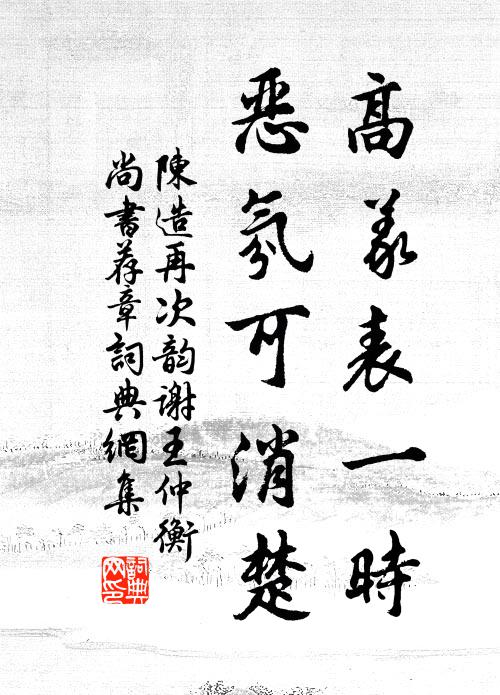 高義表一時
惡氛可消楚
陳造再次韵謝王仲衡
尚書荐章詞典網集
詞典
网印